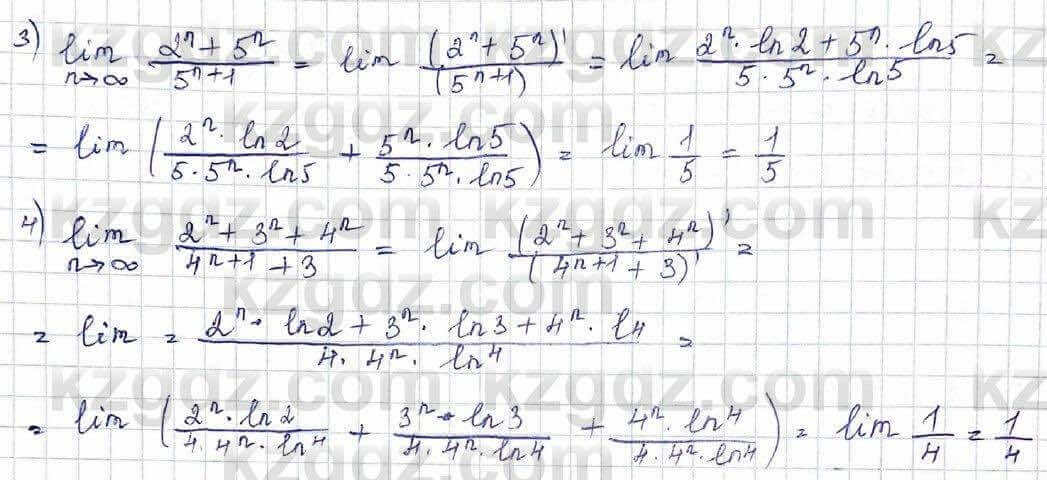 3) lim n→∞ (2^n + 5^n)/(5^(n+1)) = lim (2^n + 5^n)'/(5^(n+1)) = lim (2^n · ln2 + 5^n · ln5)/(5 · 5^n · ln5) =
= lim ((2^n · ln2)/(5 · 5^n · ln5) + (5^n · ln5)/(5 · 5^n · ln5)) = lim 1/5 = 1/5
4) lim n→∞ (2^n + 3^n + 4^n)/(4^(n+1) + 3) = lim (2^n + 3^n + 4^n)'/(4^(n+1) + 3)' =
= lim = (2^n · ln2 + 3^n · ln3 + 4^n · l4)/(4 · 4^n · ln4) =
= lim ((2^n · ln2)/(4 · 4^n · ln4) + (3^n · ln3)/(4 · 4^n · ln4) + (4^n · ln4)/(4 · 4^n · ln4)) = lim 1/4 = 1/4
kzgdz.com